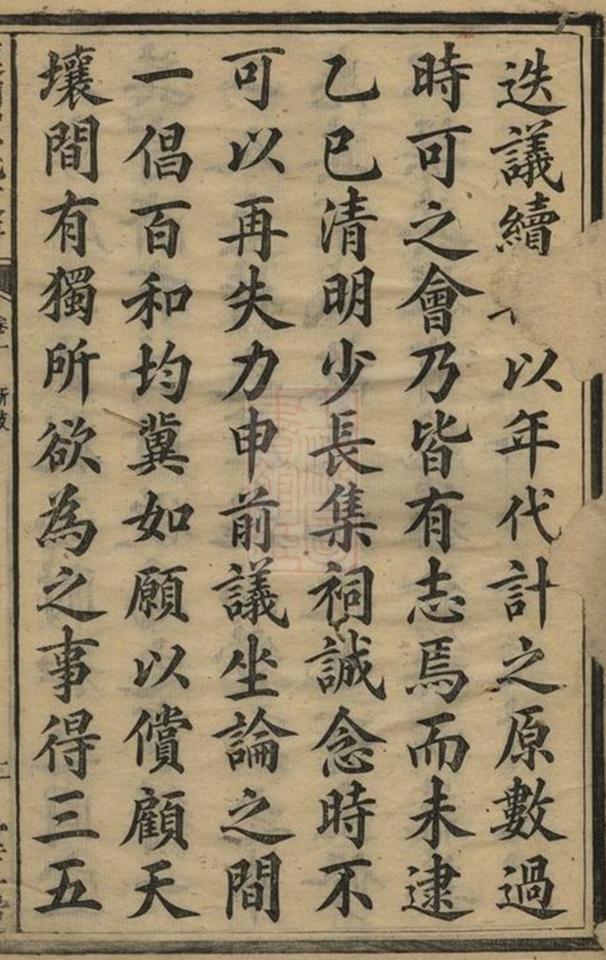 迭議續以年代計之原數過
時可之會乃皆有志焉而未逮
乙巳清明少長集祠誠念時不
可以再失力申前議坐論之間
一倡百和均冀如願以償顧天
壤間有獨所欲為之事得三五
卷一
新